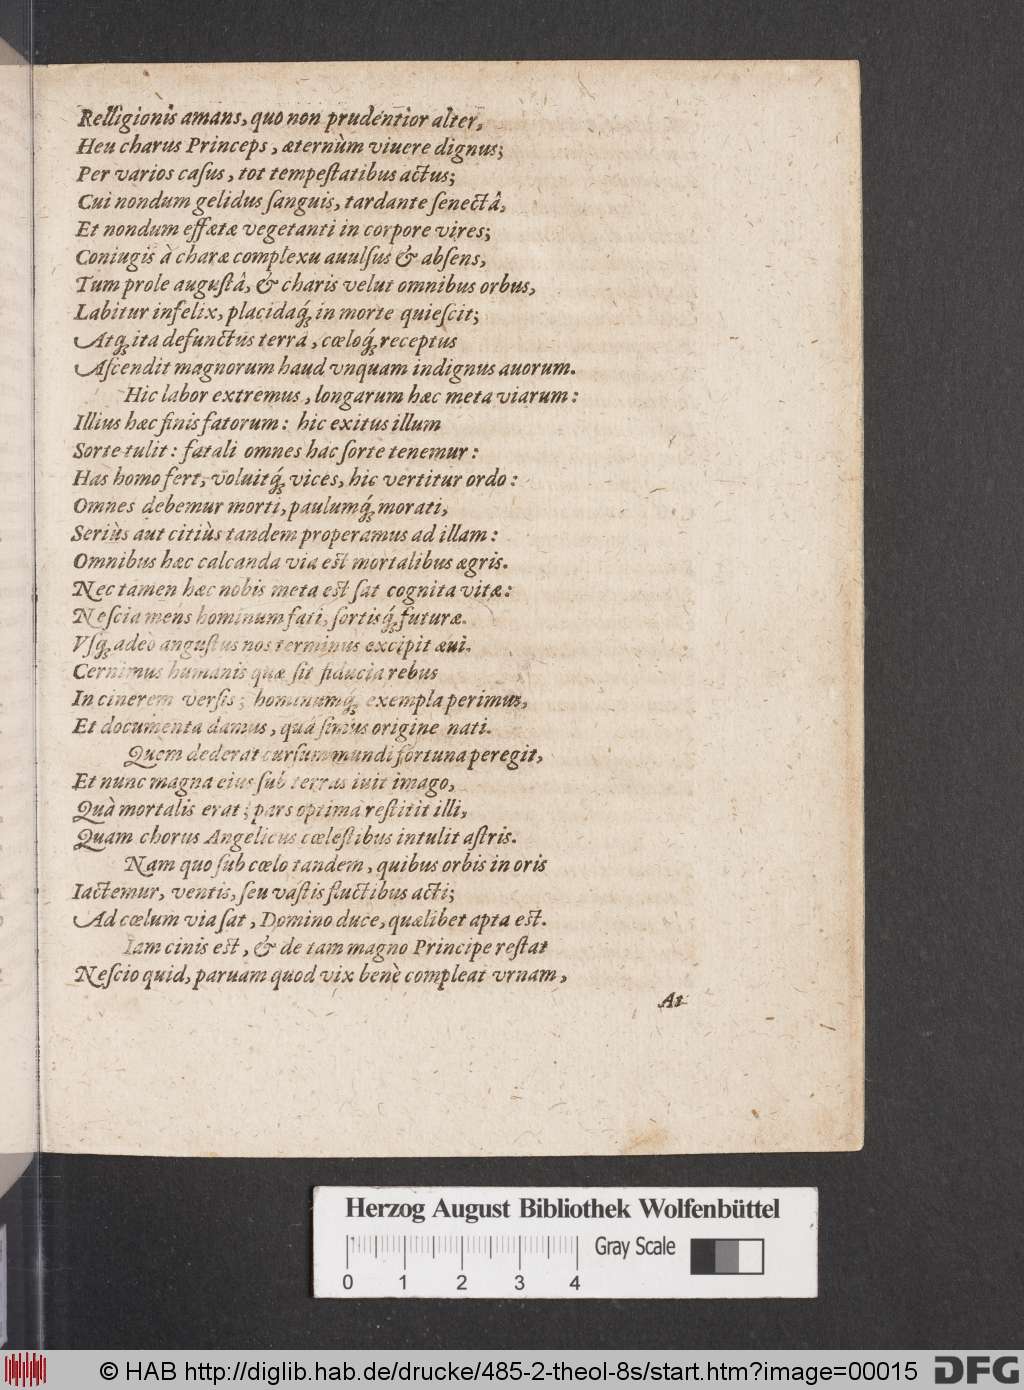 Relligionis amans, quo non prudentior alter,
Heu charus Princeps, æternùm viuere dignus;
Per varios casus, tot tempestatibus actus;
Cui nondum gelidus sanguis, tardante senectâ,
Et nondum effœtæ vegetanti in corpore vires;
Coniugis à charæ complexu auulsus & absens,
Tum prole augustâ, & charis velut omnibus orbus,
Labitur infelix, placidaq́; in morte quiescit;
Atq; ita defunctus terrâ, cœloq́; receptus
Ascendit magnorum haud vnquam indignus auorum.
Hic labor extremus, longarum hæc meta viarum:
Illius hæc finis fatorum: hic exitus illum
Sorte tulit: fatali omnes hac sorte tenemur:
Has homo fert, voluitq́; vices, hic vertitur ordo:
Omnes debemur morti, paulumq́; morati,
Seriùs aut citiùs tandem properamus ad illam:
Omnibus hæc calcanda via est mortalibus ægris.
Nec tamen hæc nobis meta est sat cognita vitæ:
Nescia mens hominum fati, sortisq́; futuræ.
Vsq; adeò angustus nos terminus excipit æui.
Cernimus humanis quæ sit fiducia rebus
In cinerem versis; hominumq́; exempla perimus,
Et documenta damus, quâ simus origine nati.
Quem dederat cursum mundi fortuna peregit,
Et nunc magna eius sub terras iuit imago,
Quà mortalis erat; pars optima restitit illi,
Quam chorus Angelicus cœlestibus intulit astris.
Nam quo sub cœlo tandem, quibus orbis in oris
Iactemur, ventis, seu vastis fluctibus acti;
Ad cœlum via sat, Domino duce, quælibet apta est.
Iam cinis est, & de tam magno Principe restat
Nescio quid, paruam quod vix benè compleat vrnam,
At
Herzog August Bibliothek Wolfenbüttel
Gray Scale
0 1 2 3 4
© HAB http://diglib.hab.de/drucke/485-2-theol-8s/start.htm?image=00015
DFG